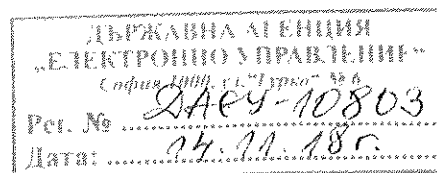 ДЪРЖАВНА АГЕНЦИЯ
„ЕЛЕКТРОННО УПРАВЛЕНИЕ“
София 1000, ул."Гурко" № 6
Рег. № ДАЕУ-10803
Дата: 14.11.18г.